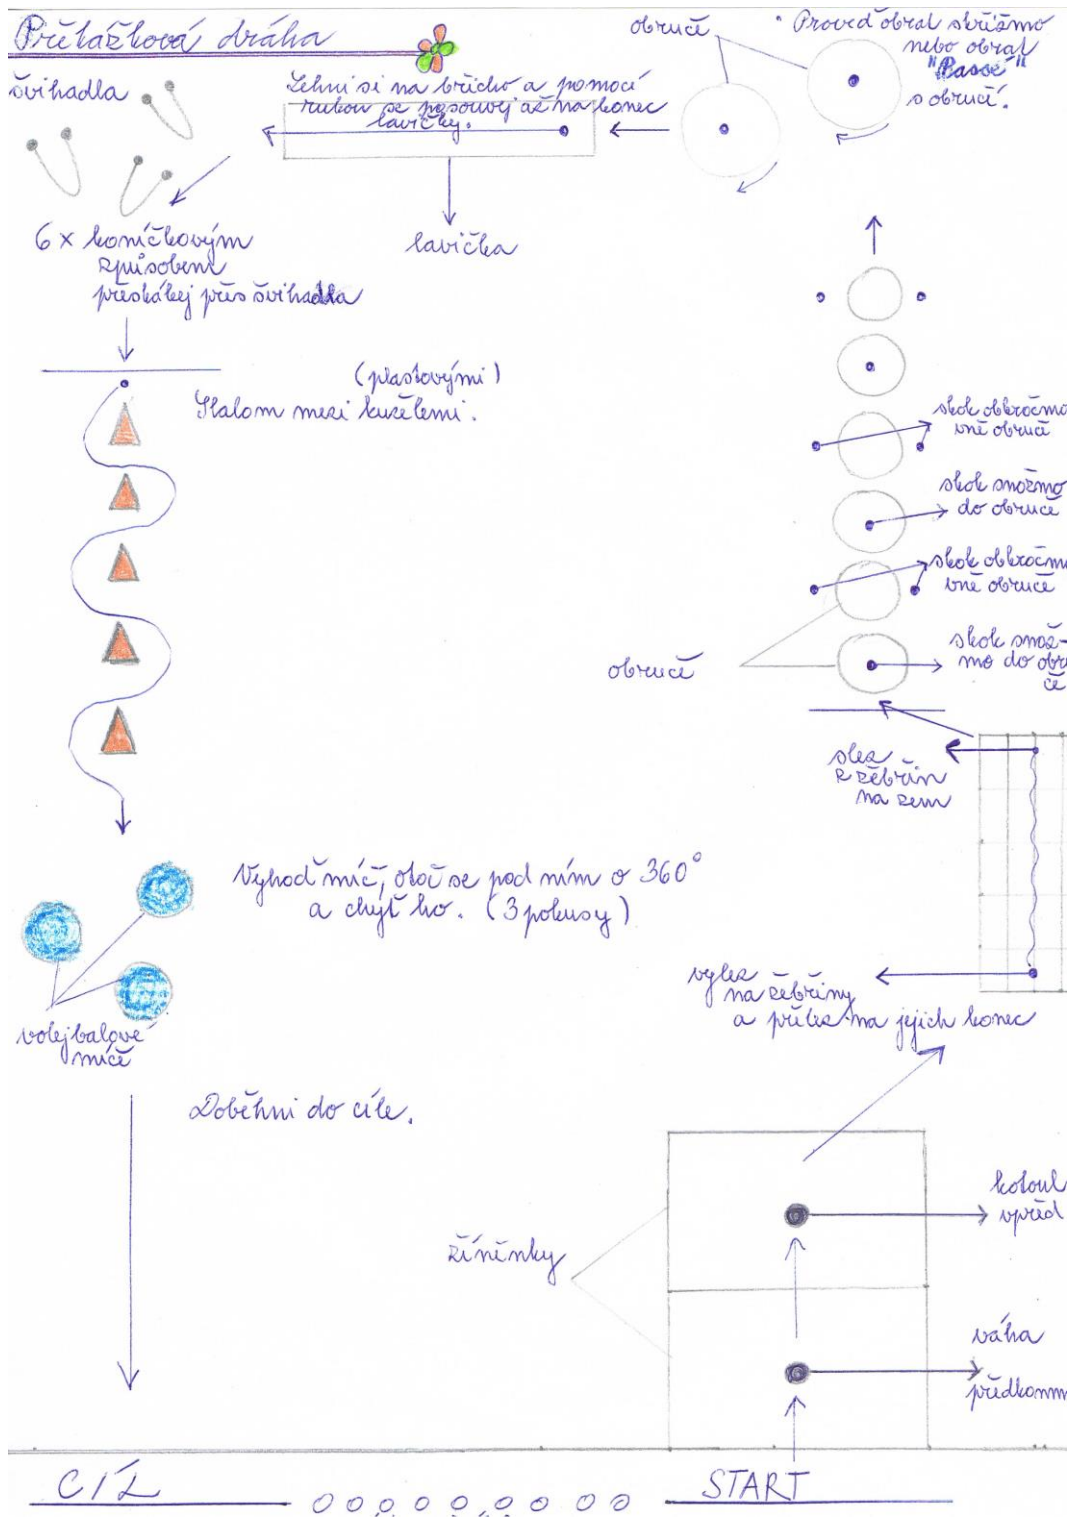 Překážková dráha
obruče
• Proveď obrat skřižmo
nebo obrat
"Passé"
s obručí.
švihadla
Lehni si na břicho a pomocí
rukou se posouvej až na konec
lavičky.
6 x koníčkovým
způsobem
přeskákej přes švihadla
lavička
(plastovými)
Slalom mezi kužely.
skok obkročmo
vně obruče
skok snožmo
do obruče
skok obkročmo
vně obruče
skok snož-
mo do obru
če
obruče
slez
z žebřin
na zem
Vyhoď míč, otoč se pod ním o 360°
a chyť ho. (3 pokusy)
volejbalové
míče
vylez
na žebřiny
a přelez na jejich konec
Doběhni do cíle.
kotoul
vpřed
žíněnky
váha
předklonm
CÍL
START